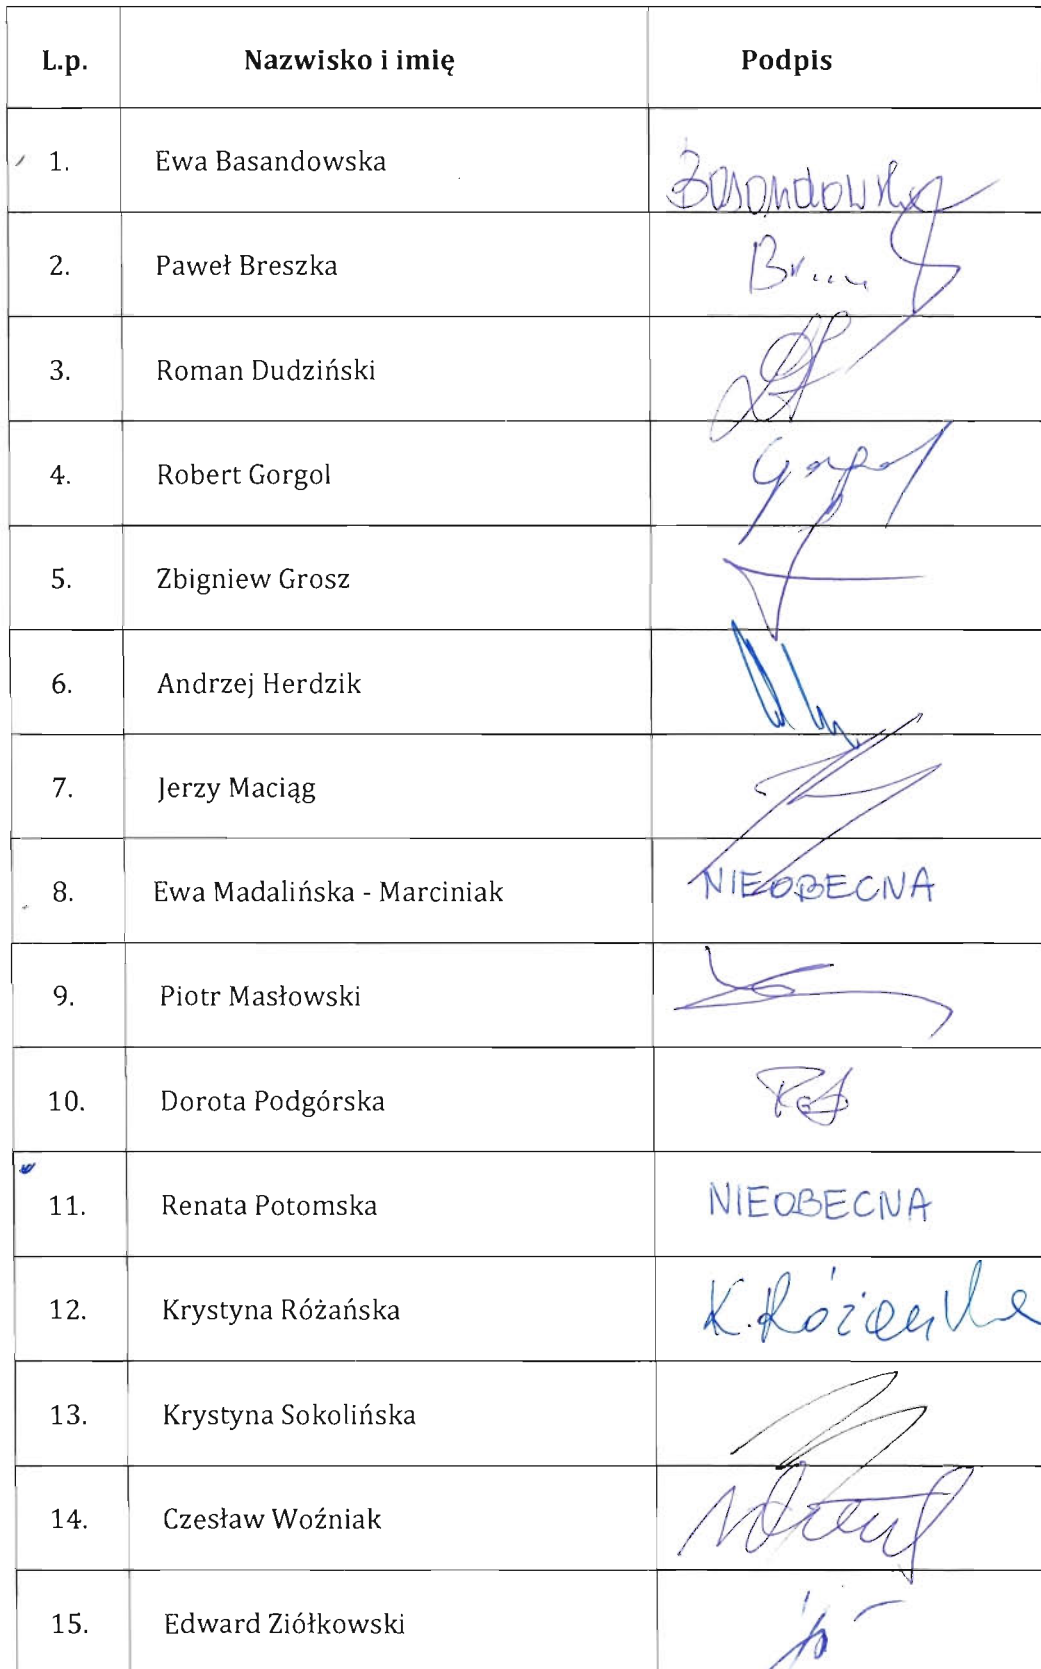 L.p. Nazwisko i imię Podpis
1. Ewa Basandowska Basandowska
2. Paweł Breszka
3. Roman Dudziński
4. Robert Gorgol Gorgol
5. Zbigniew Grosz
6. Andrzej Herdzik
7. Jerzy Maciąg
8. Ewa Madalińska - Marciniak NIEOBECNA
9. Piotr Masłowski
10. Dorota Podgórska
11. Renata Potomska NIEOBECNA
12. Krystyna Różańska K. Różańska
13. Krystyna Sokolińska
14. Czesław Woźniak
15. Edward Ziółkowski